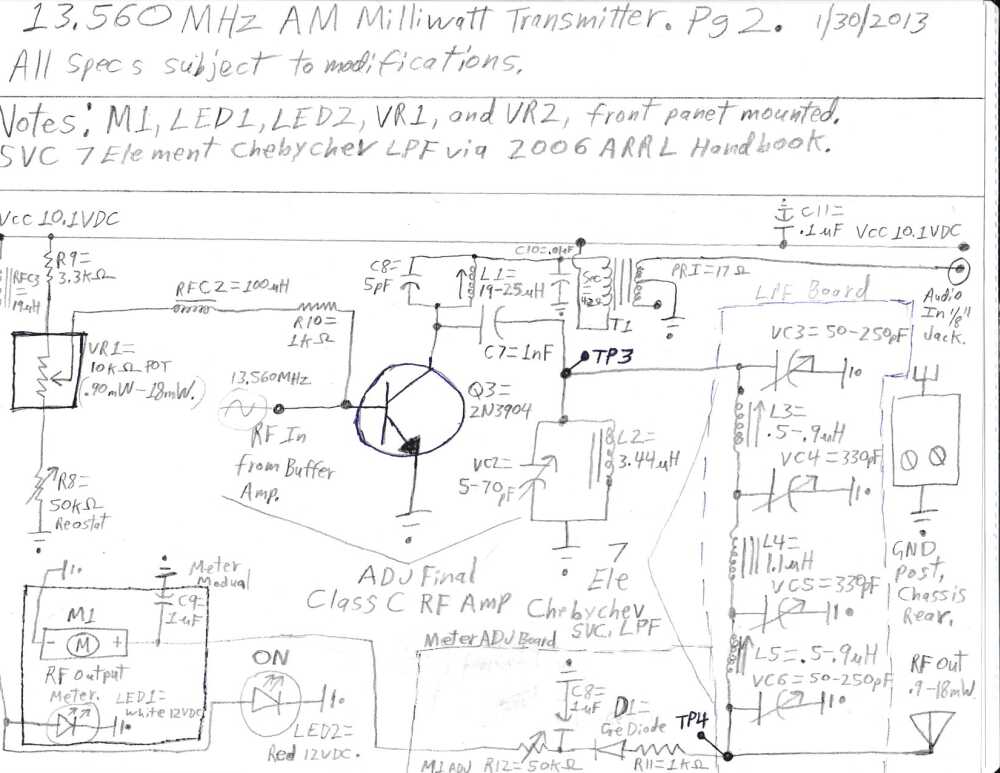 13.560MHz AM Milliwatt Transmitter. Pg 2. 1/30/2013
All Specs subject to modifications.
Notes: M1, LED1, LED2, VR1, and VR2, front panet mounted.
SVC 7 Element Chebychev LPF via 2006 ARRL Handbook.
Vcc 10.1VDC
C11=
.1uF
Vcc 10.1VDC
R9=
3.3KΩ
RFC3
=
19uH
RFC2=100uH
R10=
1KΩ
C8=
5pF
L1=
19-25uH
C10=.01uF
Sec
=
42Ω
T1
PRI=17Ω
Audio
In 1/8"
Jack.
LPF Board
C7=1nF
TP3
VC3=50-250pF
VR1=
10KΩ POT
(.90mW-18mW.)
13.560MHz
RF In
from Buffer
Amp.
Q3=
2N3904
L3=
.5-.9uH
VC4=330pF
VC2=
5-70pF
L2=
3.44uH
R8=
50KΩ
Reostat
ADJ Final
Class C RF Amp
7
Ele
Chebychev
SVC. LPF
L4=
1.1uH
VC5=330pF
GND
Post,
Chassis
Rear.
Meter
Modual
C9=
1uF
M1
- M +
RF Output
Meter.
LED1=
White 12VDC
ON
LED2=
Red 12VDC.
Meter ADJ Board
C8=
1uF
D1=
Ge Diode
M1 ADJ R12=50KΩ
R11=1KΩ
TP4
L5=.5-.9uH
VC6=50-250pF
RF Out
.9-18mW.